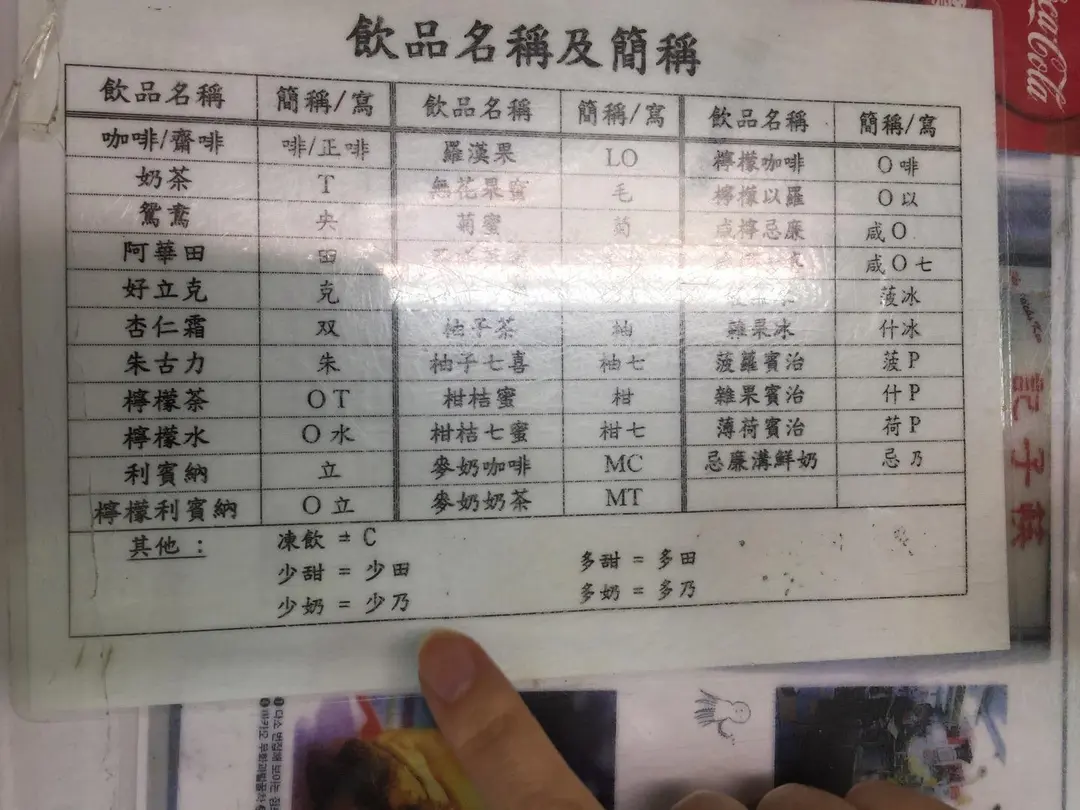 飲品名稱及簡稱
飲品名稱 簡稱/寫 飲品名稱 簡稱/寫 飲品名稱 簡稱/寫
咖啡/齋啡 啡/正啡 羅漢果 LO 檸檬咖啡 O啡
奶茶 T 無花果蜜 毛 檸檬以羅 O以
鴛鴦 央 菊蜜 菊 咸檸忌廉 咸O
阿華田 田 咸O七
好立克 克 菠冰
杏仁霜 双 柚子茶 柚 雜果冰 什冰
朱古力 朱 柚子七喜 柚七 菠蘿賓治 菠P
檸檬茶 OT 柑桔蜜 柑 雜果賓治 什P
檸檬水 O水 柑桔七蜜 柑七 薄荷賓治 荷P
利賓納 立 麥奶咖啡 MC 忌廉溝鮮奶 忌乃
檸檬利賓納 O立 麥奶奶茶 MT
其他：
凍飲 = C
少甜 = 少田 多甜 = 多田
少奶 = 少乃 多奶 = 多乃
Coca-Cola
記子